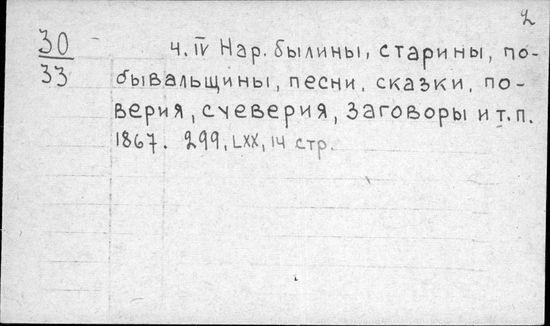 2
30
33
ч. IV Нар. былины, старины, по-
бывальщины, песни, сказки, по-
верия, суеверия, заговоры и т.п.
1867. 299, LXX, 14 стр.